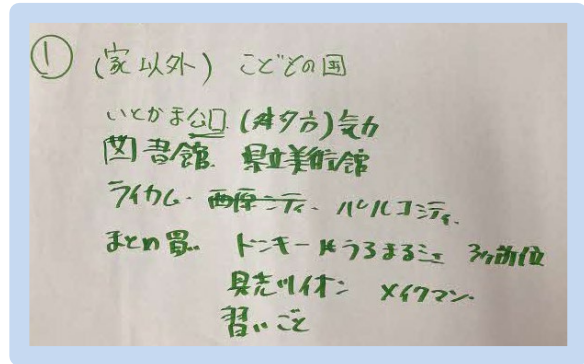 ① (家以外) こどもの国
いとかま公口 (夕方) 気力
図書館 県立美術館
ライカム. 西原シティ. パルコシティ.
まとめ買い ドンキー うるまるシェ
イオン メイクマン.
習いごと